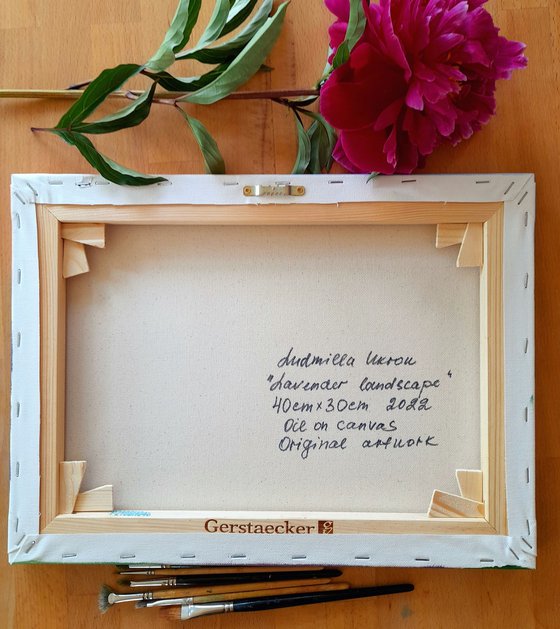 Ludmilla Ukrow
"Lavender landscape"
40cm x 30cm 2022
Oil on canvas
Original artwork
Gerstaecker